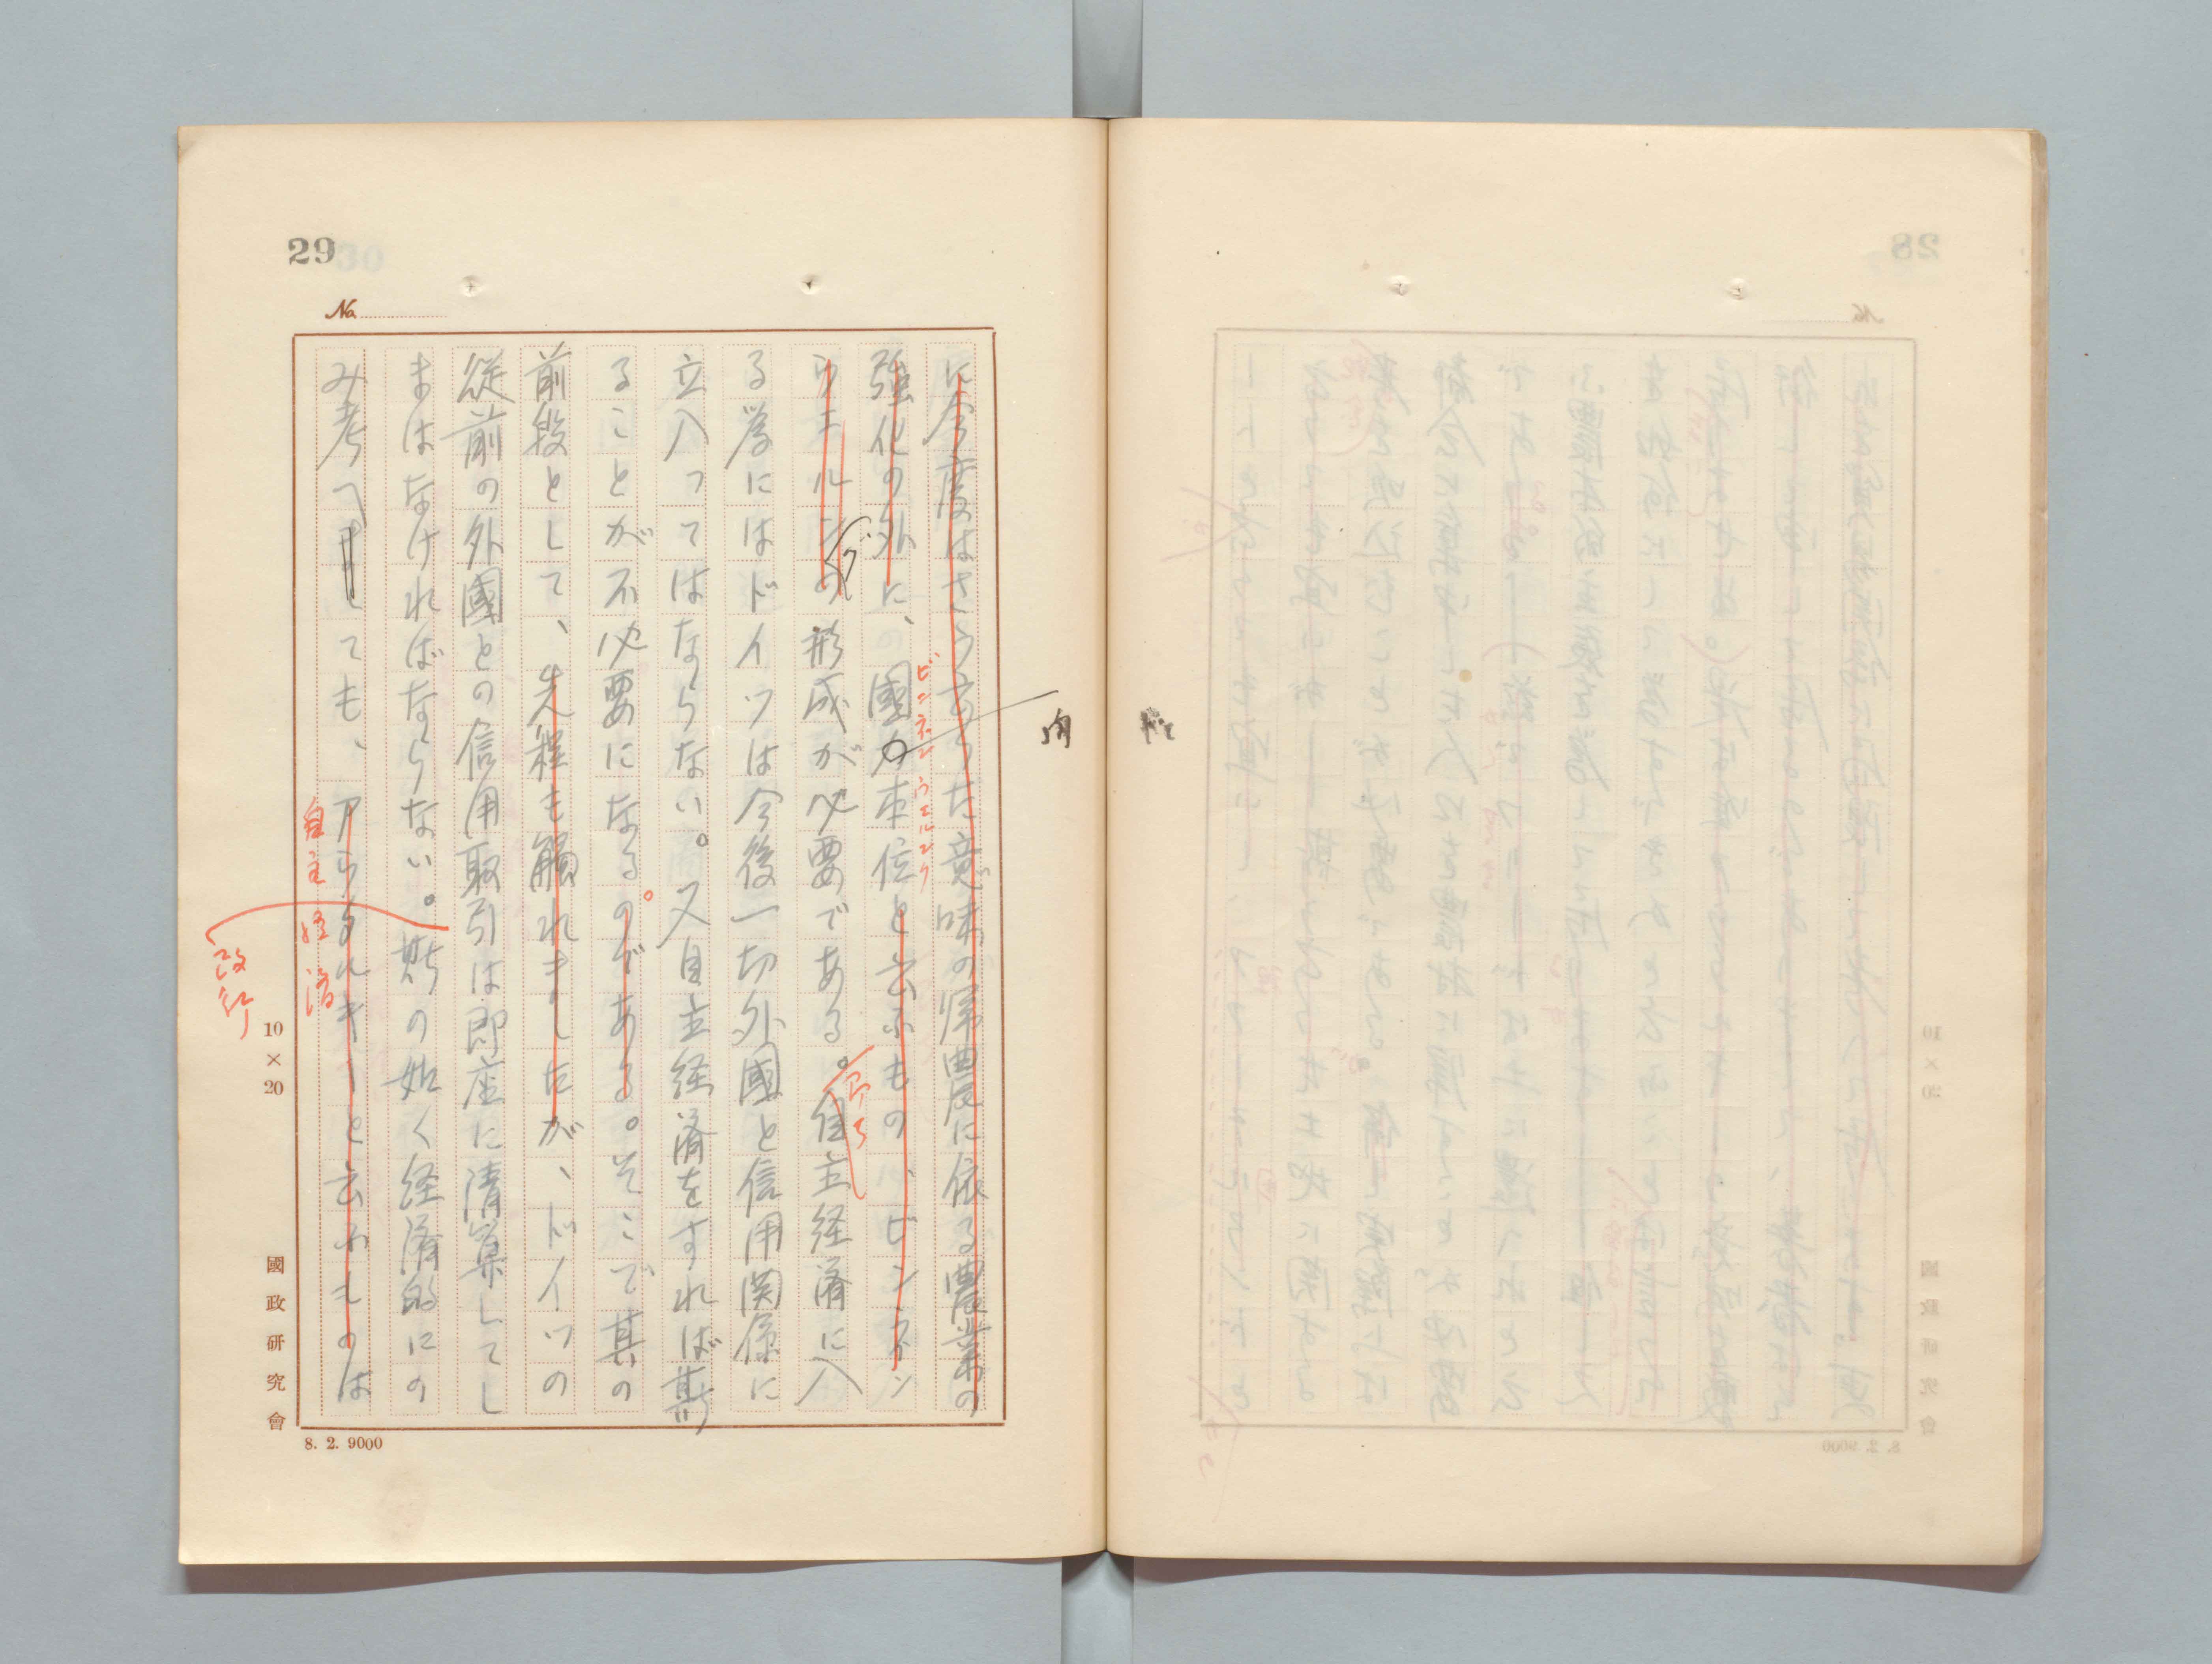 29
No.
に今度はさう云つた意味の帰農に依る農業の
強化の外に、國力本位と云ふもの、ビンネン
ビンネンウエルンク
内
ウエルンの形成が必要である。自主経済に入
グ
る為にはドイツは今後一切外國と信用関係に
立入つてはならない。又自主経済をすれば斯
ることが不必要になる。のである。そこで其の
前段として、先程も触れましたが、ドイツの
従前の外國との信用取引は即座に清算してし
まはなければならない。斯の如く経済的にの
改行
み考へましても、アウタルキーと云ふものは
自主経済
10×20
國政研究會
8. 2. 9000